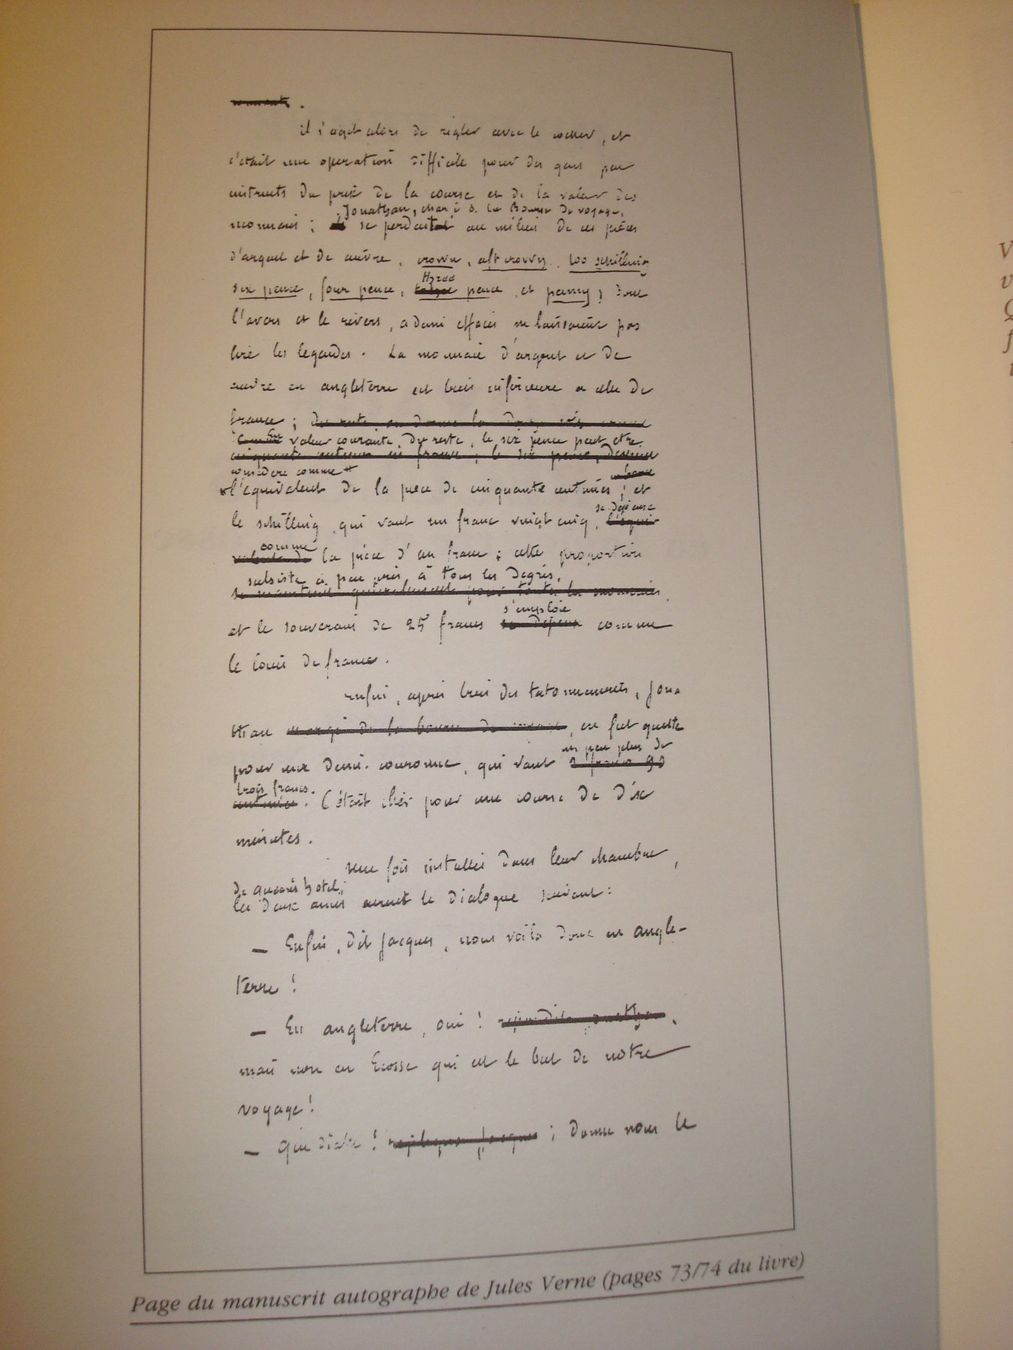 il s'agit alors de régler avec le cocher, et
c'était une opération difficile pour des gens peu
instruits du prix de la course et de la valeur des
Jonathan, chargé de la Bourse de voyage,
monnaies ; se perdait au milieu de ces pièces
d'argent et de cuivre, crown, half crown, two schilling
six pence, four pence, three pence et penny ; dont
l'avers et le revers, à demi effacés ne laissaient pas
lire les légendes. La monnaie d'argent et de
cuivre en angleterre est bien inférieure à celle de
france ;
valeur courante. Du reste, le six pence peut être
considéré comme
l'équivalent de la pièce de cinquante centimes ; et
se dépense
le schilling qui vaut un franc vingt cinq,
comme
la pièce d'un franc ; cette proportion
subsiste à peu près à tous les degrés,
s'emploie
et le souverain de 25 francs se dépense comme
le louis de france.
Enfin, après bien des tatonnements, Jona
than chargé de la bourse de voyage, en fut quitte
un peu plus de
pour une demi-couronne, qui vaut 2 francs 90
trois francs.
centimes. C'était cher pour une course de dix
minutes.
Une fois installés dans leur chambre,
de queen's hotel,
les deux amis eurent le dialogue suivant :
— Enfin, dit Jacques, nous voilà donc en angle-
terre !
— En angleterre, oui ! répondit Jonathan,
mais non en Ecosse qui est le but de notre
voyage !
— Que diable ! répliqua Jacques ; donne nous le
Page du manuscrit autographe de Jules Verne (pages 73/74 du livre)